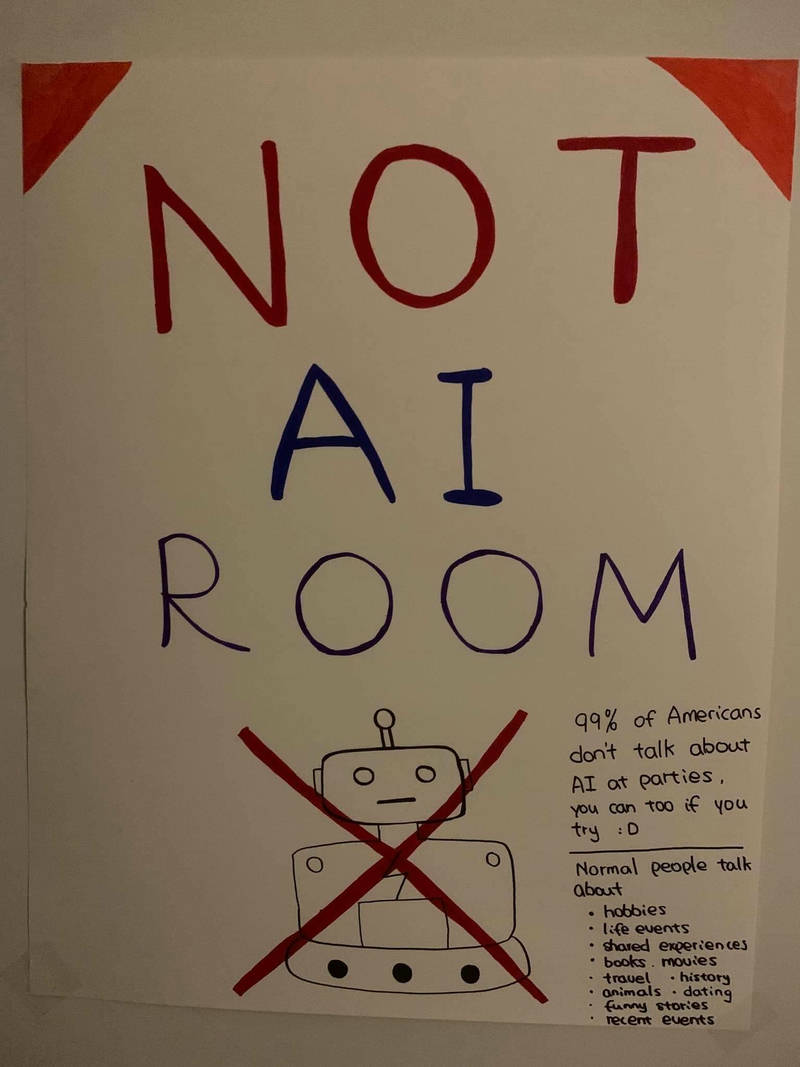 NOT
AI
ROOM
99% of Americans
don't talk about
AI at parties,
you can too if you
try :D
Normal people talk
about
• hobbies
• life events
• shared experiences
• books. movies
• travel • history
• animals • dating
• funny stories
• recent events